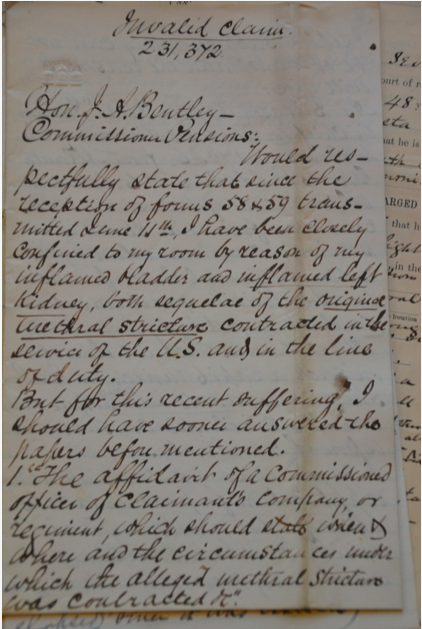 Invalid claim.
231,372
Hon. J. A. Bentley—
Commissioner Pensions:
Would res-
pectfully state that since the
reception of forms 58 & 59 trans-
mitted June 11th, I have been closely
confined to my room by reason of my
inflamed bladder and inflamed left
kidney, both sequelae of the original
urethral stricture contracted in the
service of the U.S. and in the line
of duty.
But for this recent suffering, I
should have sooner answered the
papers before mentioned.
1.st "The affidavit of a Commissioned
officer of claimant's company, or
regiment, which should state when &
where and the circumstances under
which the alleged urethral stricture
was contracted &c".
ourt of
48
sta
at he is
th
ARGED
that h
ight
in the